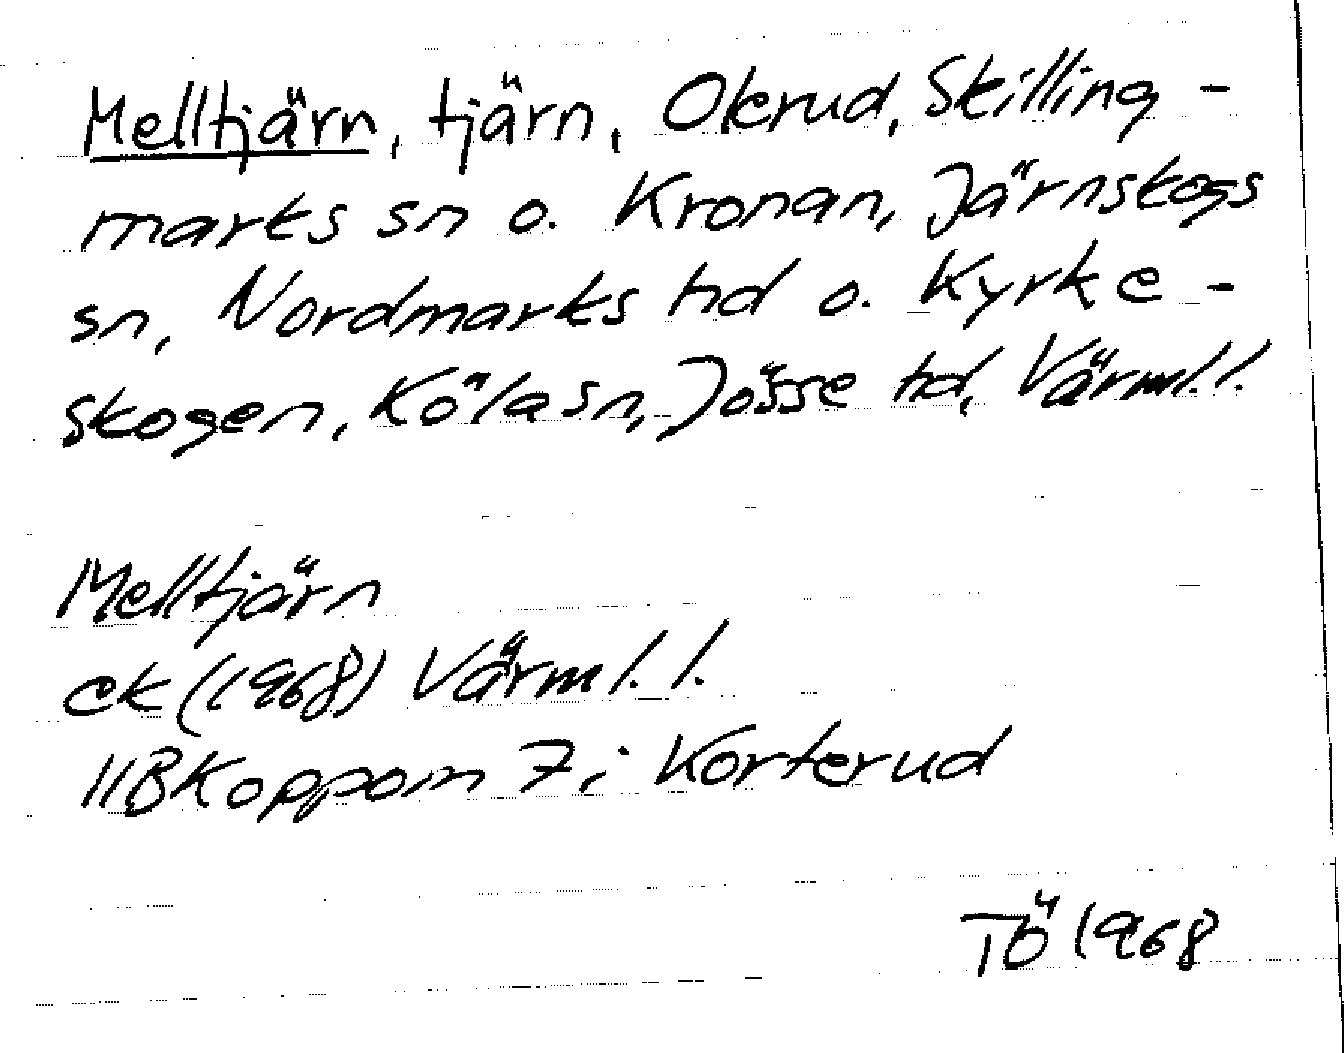 Melltjärn, tjärn, Olerud, Skilling-
marks sn o. Kronan, Järnskogs
sn, Nordmarks hd o. Kyrke-
skogen, Köla sn, Jösse hd, Värml. l.
Melltjärn
ek (1968) Värml. l.
11B Koppom 7i Korterud
TÖ 1968